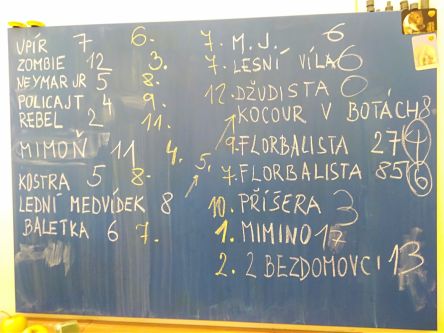 UPÍR 7 6.
ZOMBIE 12 3.
NEYMAR JR 5 8.
POLICAJT 4 9.
REBEL 2 11.
MIMOŇ 11 4.
KOSTRA 5 8.
LEDNÍ MEDVÍDEK 8 5.
BALETKA 6 7.
7. M.J. 6
7. LESNÍ VÍLA 6
12. DŽUDISTA 0
KOCOUR V BOTÁCH 8
9. FLORBALISTA 27 4
7. FLORBALISTA 85 6
10. PŘÍŠERA 3
1. MIMINO 17
2. 2 BEZDOMOVCI 13